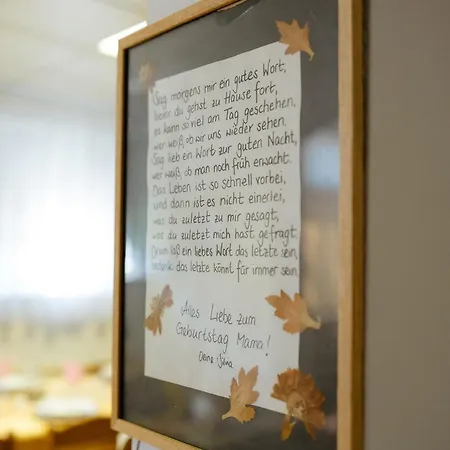 Sag morgens mir ein gutes Wort,
bevor du gehst zu Hause fort,
es kann so viel am Tag geschehen,
wer weiß, ob wir uns wieder sehen.
Sag lieb ein Wort zur guten Nacht,
wer weiß, ob man noch früh erwacht.
Das Leben ist so schnell vorbei,
und dann ist es nicht einerlei,
was du zuletzt zu mir gesagt,
was du zuletzt mich hast gefragt.
Drum laß ein liebes Wort das letzte sein,
bedenk: das letzte könnt für immer sein.
Alles Liebe zum
Geburtstag Mama!
Deine